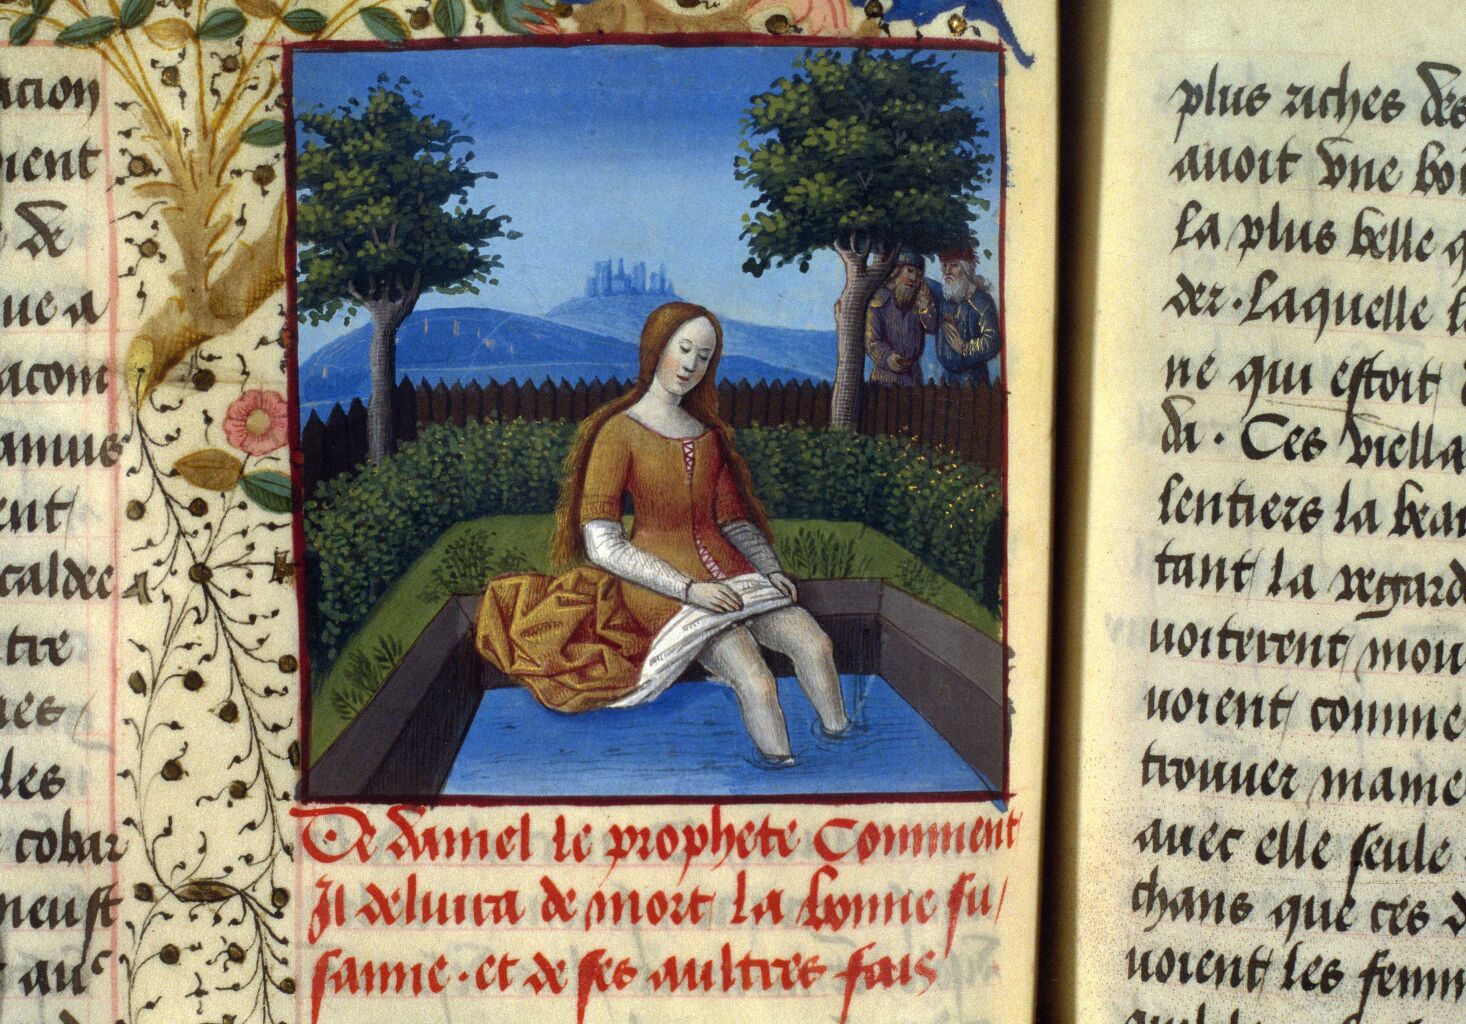 acion
ient
& 
ue a
acom
amus
ent
caldee
tre
es
les
cobar
neust
auc
De daniel le prophete Comment
Il deliura de mort la bonne su/
sanne. et de ses aultres fais
plus riches des
auoit vne bo
la plus belle q
der. Laquelle l
ne qui estoit
da. Ces viella
lentiers la beau
tant la regard
uoiterent mou
uoient comme
trouuer manie
auec elle seule
chans que ces d
uoient les femm